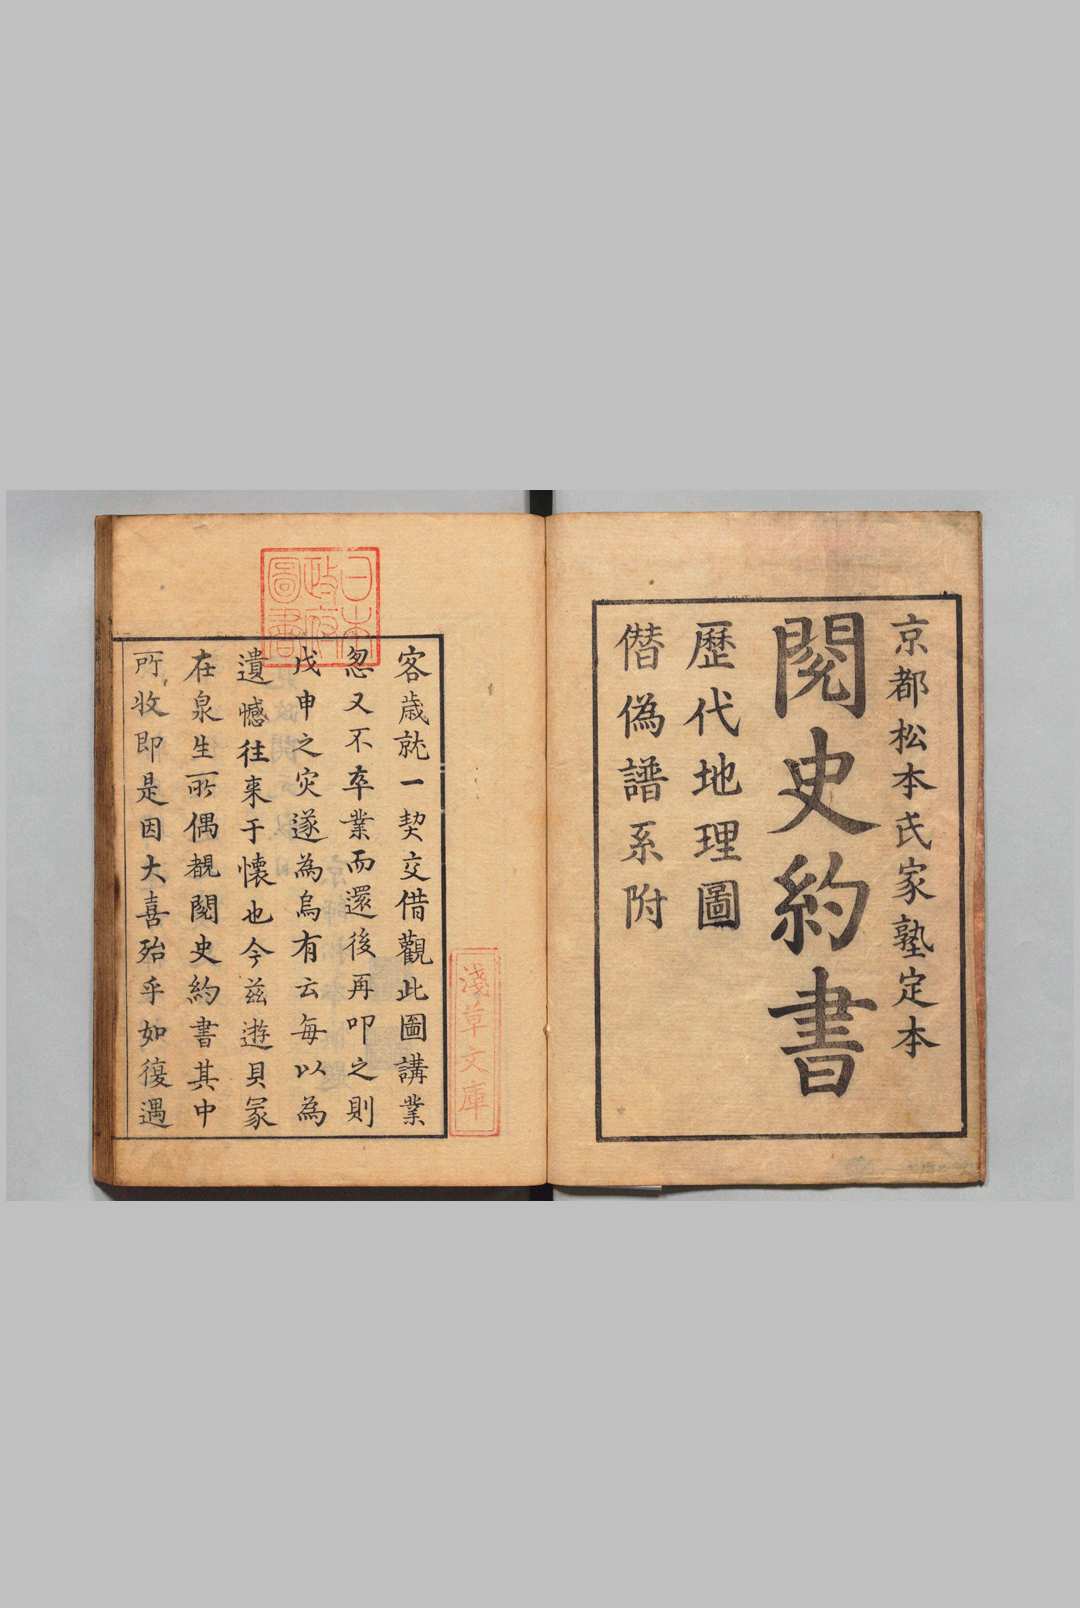 京都松本氏家塾定本
閱史約書
歷代地理圖
僭偽譜系附
日本
政府
圖書
淺草文庫
客歲就一契交借觀此圖講業
忽又不卒業而還後再叩之則
戊申之灾遂為烏有云每以為
遺憾往来于懷也今茲遊貝冢
在泉生所偶覩閱史約書其中
所收即是因大喜殆乎如復遇